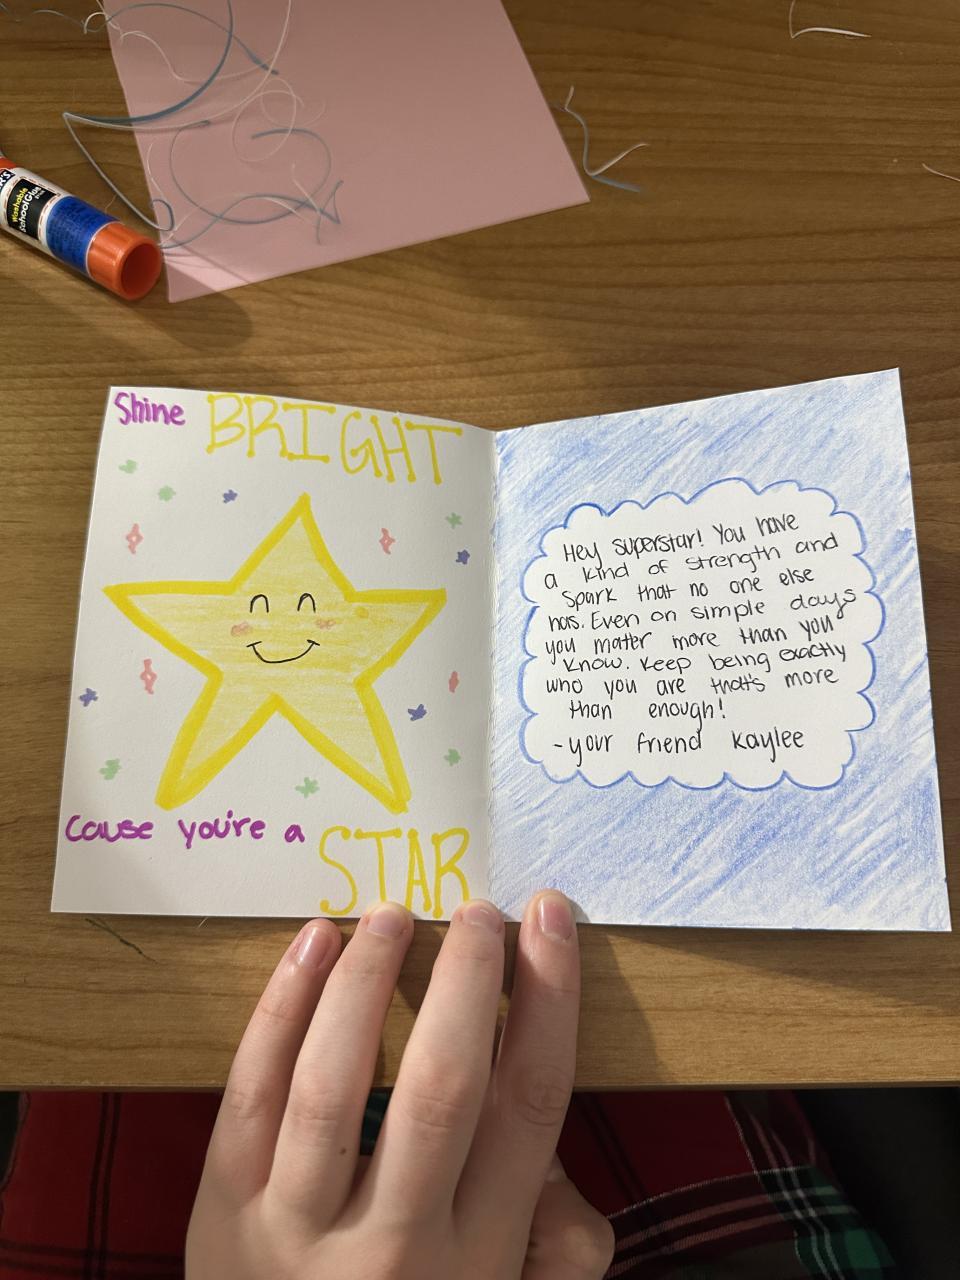 Washable
School Glue
Shine BRIGHT
Cause you're a
STAR
Hey superstar! You have
a kind of strength and
spark that no one else
has. Even on simple days
you mater more than you
know. Keep being exactly
who you are that's more
than enough!
- your friend Kaylee